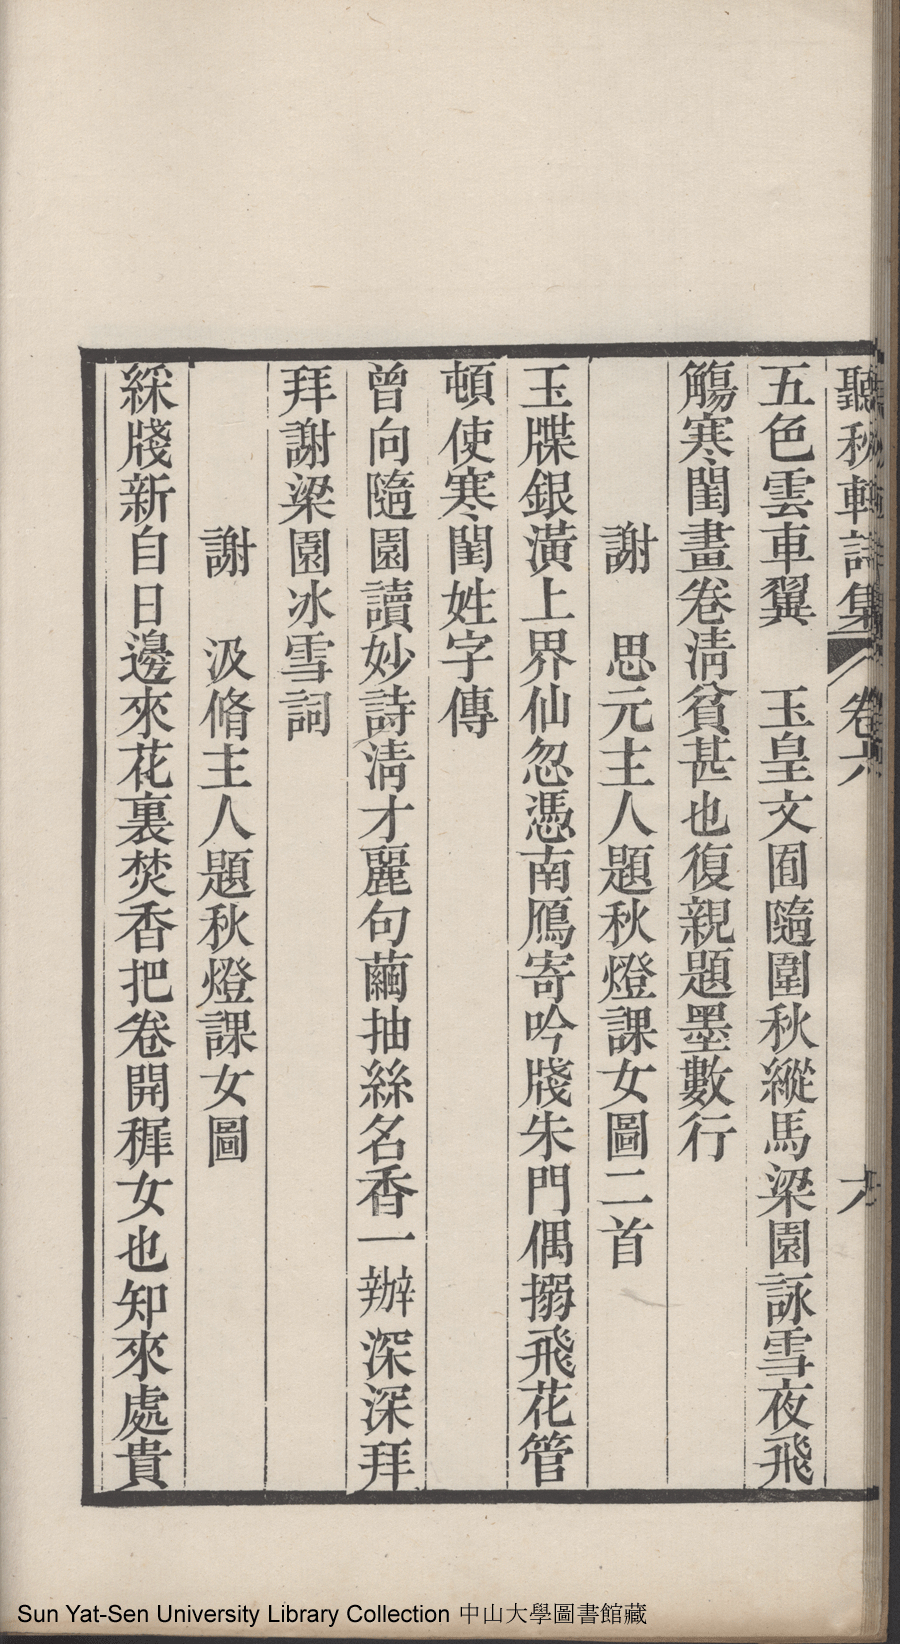 聽秋軒詩集 卷六 九
五色雲車翼 玉皇文囿隨圍秋縱馬梁園詠雪夜飛
觴寒閨畫卷清貧甚也復親題墨數行
謝 思元主人題秋燈課女圖二首
玉牒銀潢上界仙忽憑南鴈寄吟牋朱門偶搦飛花管
頓使寒閨姓字傳
曾向隨園讀妙詩清才麗句繭抽絲名香一辦深深拜
拜謝梁園冰雪詞
謝 汲脩主人題秋燈課女圖
綵牋新自日邊來花裏焚香把卷開穉女也知來處貴
Sun Yat-Sen University Library Collection 中山大學圖書館藏